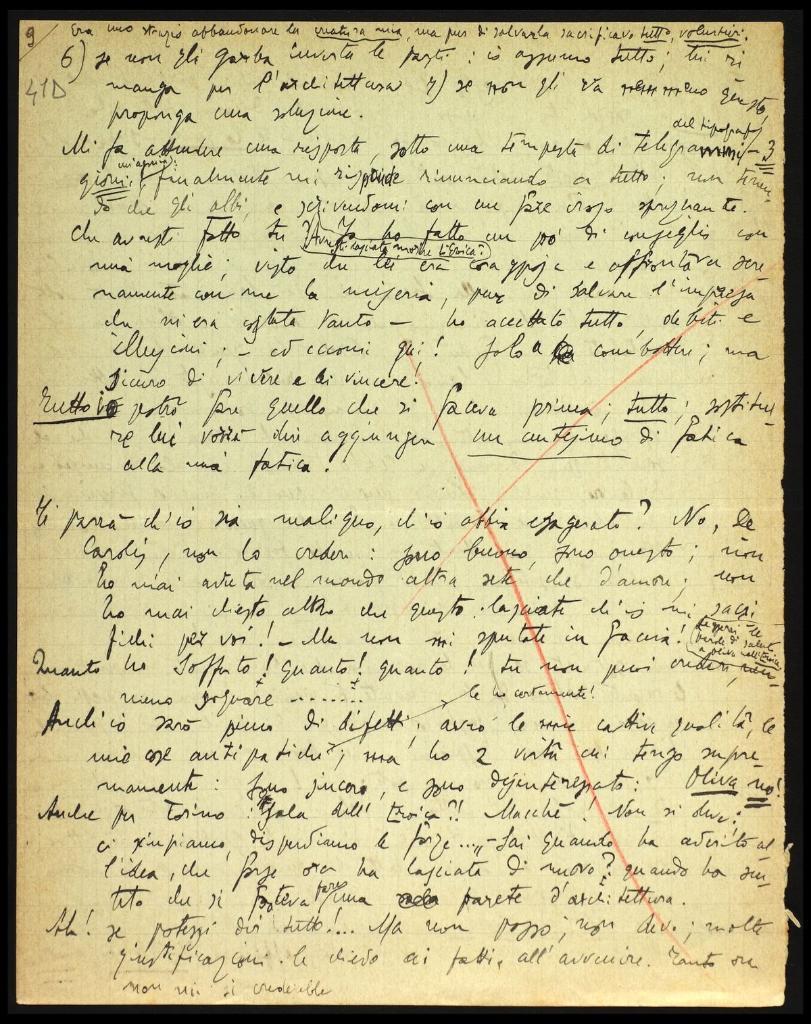 9
Era uno strazio abbandonare la creatura mia, ma pur di salvarla sacrificavo tutto, volentieri.
6) se non gli garba inverta le parti: io assumo tutto; lui si
41D
manga per l'architettura 7) se non gli va nemmeno questo,
proponga una soluzione.
del tipografo
Mi fa attendere una risposta, sotto una tempesta di telegrammi - 3
giorni; finalmente mi risponde rinunciando a tutto; non
che gli altri, e scrivendomi con un fare
Che avresti fatto tu? Avresti lasciato morire l'Eroica?
Io ho fatto un po' di consiglio con
mia moglie; visto che lei era coraggiosa e affrontava sere
namente con me la miseria, pur di salvare l'impresa
che m'era costata tanto - ho accettato tutto, debiti e
illusioni; - ed eccomi qui! Solo a combattere; ma
sicuro di vivere e di vincere!
Tutto io potrò fare quello che si faceva prima; tutto; sostitui
re lui vorrà dire aggiungere un centesimo di fatica
alla mia fatica.
Ti parrà ch'io sia maligno, ch'io abbia esagerato? No, De
Carolis, non lo credere: sono buono, sono onesto; non
ho mai avuta nel mondo altra sete che d'amore; non
ho mai chiesto altro che questo: lasciate ch'io mi sacri
fichi per voi! - Ma non mi sputate in faccia!
Quanto ho sofferto! quanto! quanto! tu non puoi crederci, nem-
meno sognare ........
le ho certamente!
Anch'io sarò pieno di difetti, avrò le mie cattive qualità, le
mie cose antipatiche; ma ho 2 virtù cui tengo supre
mamente: sono sincero, e sono disinteressato: Oliva no!
Anche per Torino: "Sala dell'Eroica"?! Macchè! Non si deve;
ci sciupiamo, disperdiamo le forze ..." - Sai quando ha aderito al
l'idea, che forse ora ha lasciata di nuovo? quando ha sen-
tito che si poteva fare una parete d'architettura.
Ah! se potessi dir tutto!... Ma non posso; non devo; molte
giustificazioni le chiedo ai fatti e all'avvenire. Tanto ora
non mi si crederebbe